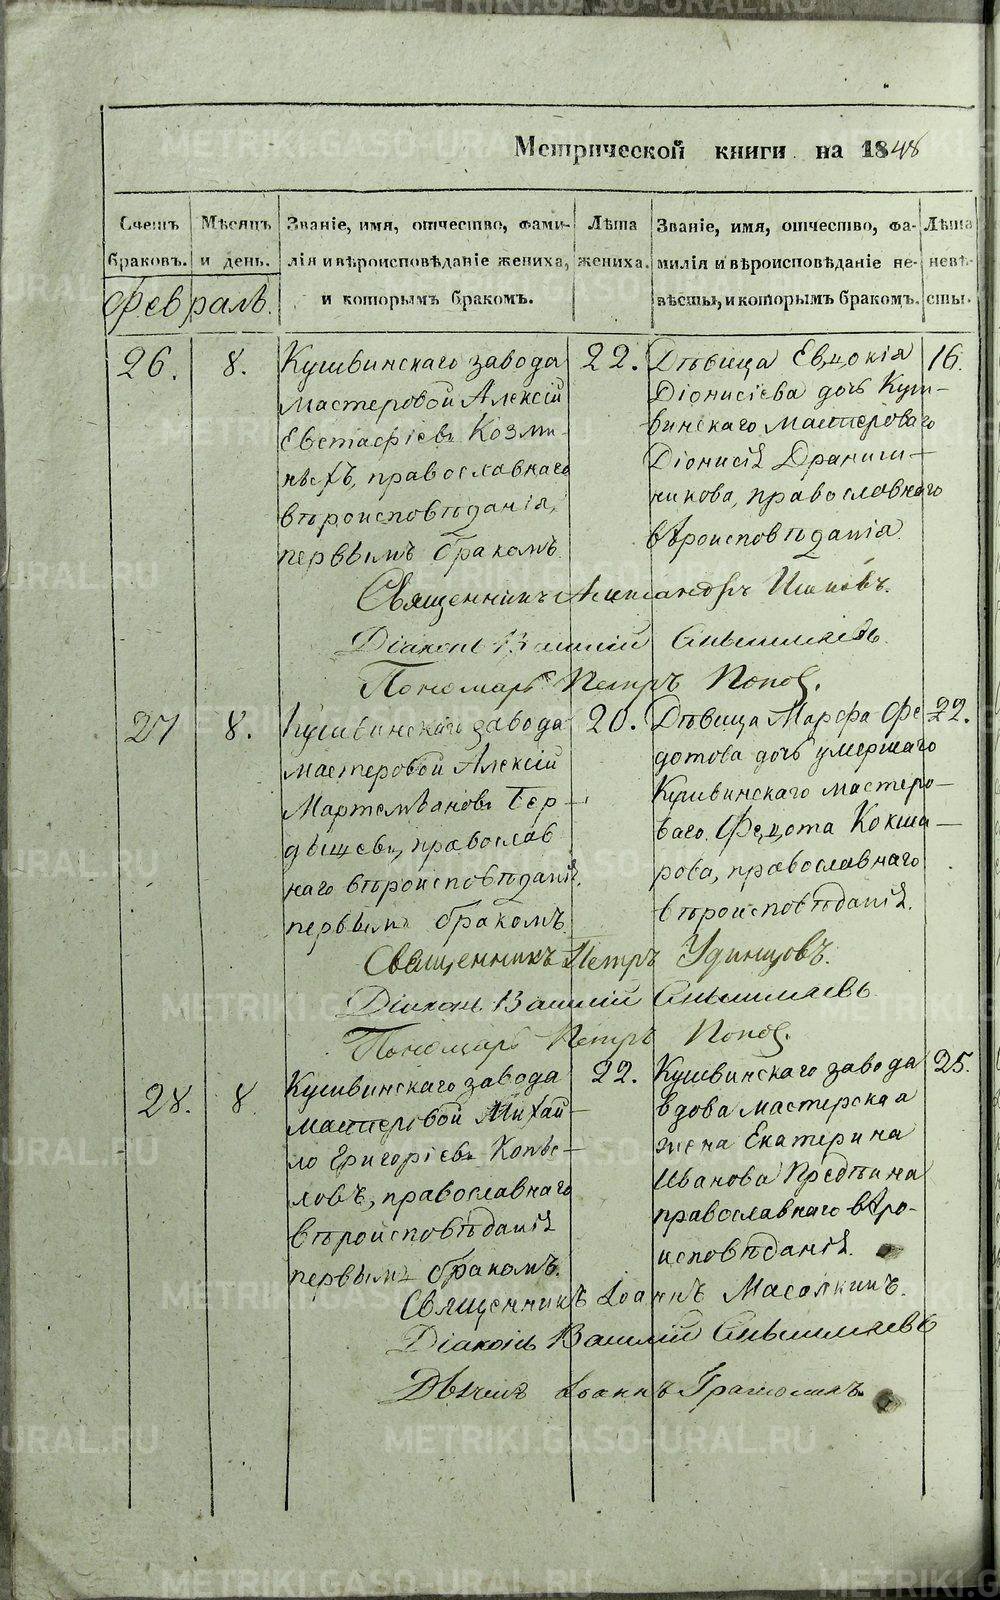 METRIKI.GASO-URAL.RU
Метрической книги на 1848
Счетъ браковъ.
Мѣсяцъ и день.
Званіе, имя, отчество, фами-
лія и вѣроисповѣданіе жениха,
и которымъ бракомъ.
Лѣта жениха.
Званіе, имя, отчество, фа-
милія и вѣроисповѣданіе не-
вѣсты, и которымъ бракомъ.
Лѣта невѣ-
сты.
Февраль.
26.
8.
Кушвинскаго завода
мастеровой Алексій
Евстафіевъ Козми-
ныхъ, православнаго
вѣроисповѣданія,
первымъ бракомъ.
22.
Дѣвица Евдокія
Діонисіева дочь Куш-
винскаго мастероваго
Діонисія Драниш-
никова, православнаго
вѣроисповѣданія.
16.
Священникъ Александръ Поповъ.
Діаконъ Василій
Пономарь Петръ Попов.
27
8.
Кушвинскаго завода
мастеровой Алексій
Мартемьановъ Бер-
дышевъ, православ
наго вѣроисповѣданія,
первымъ бракомъ.
20.
Дѣвица Марфа Фе-
дотова дочь умершаго
Кушвинскаго мастеро-
ваго Федота Кокша-
рова, православнаго
вѣроисповѣданія.
22.
Священникъ Петръ Удинцовъ.
Діаконъ Василій
Пономарь Петръ Попов.
28.
8.
Кушвинскаго завода
мастеровой Михай-
ло Григоріевъ Копы-
ловъ, православнаго
вѣроисповѣданія
первымъ бракомъ.
22.
Кушвинскаго завода
вдова мастерская
жена Екатерина
Иванова Предѣина
православнаго вѣро-
исповѣданія.
25.
Священникъ Іоаннъ
Діаконъ Василій
Дьячекъ Іоаннъ